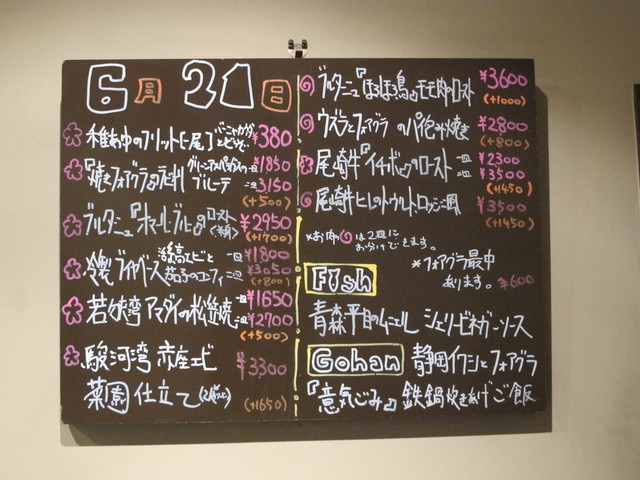 6月 21日
稚あゆのフリット(一尾) バーニャカウダとどうぞ ¥380
『焼きフォアグラ』のラビオリ 一皿 ¥1850
二皿 ¥3150
(+500)
ブルターニュ『オマール・ブルー』のロースト ¥2950
<半身> (+1700)
冷製ブイヤベース 一皿 ¥1800
二皿 ¥3050
(+800)
若狭湾 アマダイの松笠焼 一皿 ¥1650
二皿 ¥2700
(+500)
駿河湾 赤座エビ ¥3300
菜園仕立て (+1650)
ブルターニュ『ほろほろ鳥』モモ肉のロースト ¥3600
(+1000)
ウズラとフォアグラ のパイ包み焼き ¥2800
(+800)
尾崎牛『イチボ』のロースト 一皿 ¥2300
二皿 ¥3500
(+1450)
尾崎牛ヒレのトゥルヌド・ロッシーニ風 ¥3500
(+1450)
*お肉の は2皿に
お分けできます。
*フォアグラ最中
あります。¥600
Fish
青森平目のムニエル シェリービネガーソース
Gohan 静岡イワシとフォアグラ
『意気ごみ』鉄鍋炊きあげご飯